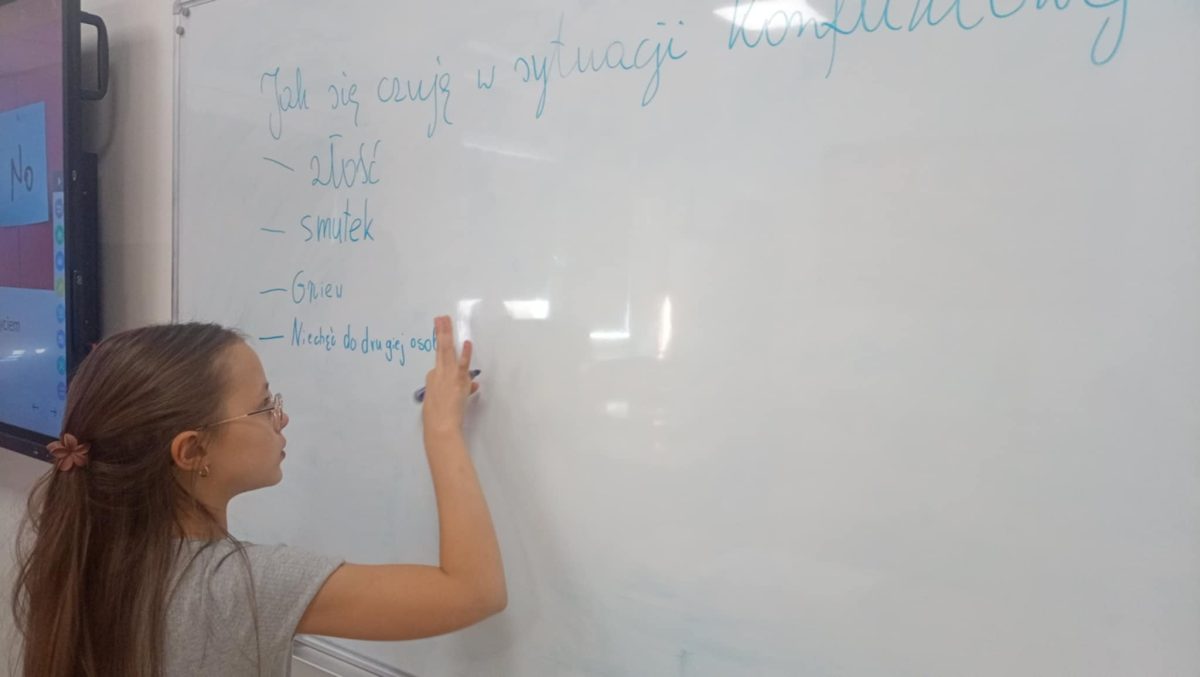 Jak się czują w sytuacji konfliktowej
- złość
- smutek
- Gniew
- Niechęć do drugiej osob
No